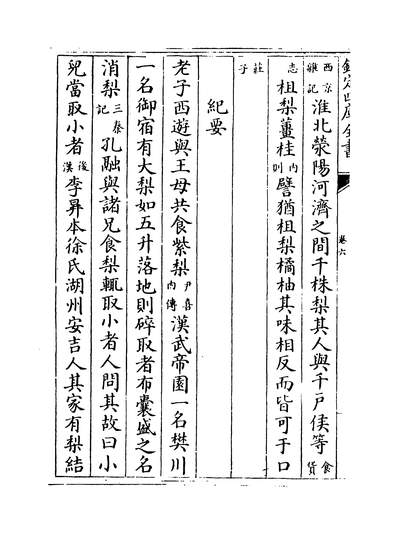 欽定四庫全書
卷六
西京雜記淮北滎陽河濟之間千株梨其人與千戸侯等食貨
志柤梨薑桂内則譬猶柤梨橘柚其味相反而皆可于口
莊子
紀要
老子西遊與王母共食紫梨尹喜内傳漢武帝園一名樊川
一名御宿有大梨如五升落地則碎取者布囊盛之名
消梨三秦記孔融與諸兄食梨輒取小者人問其故曰小
兒當取小者後漢李昪本徐氏湖州安吉人其家有梨結